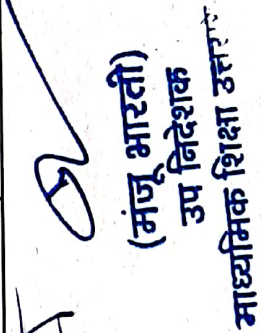 (मंजू भारती)
उप निदेशक
माध्यमिक शिक्षा